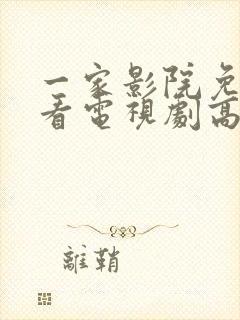 一家影院免
看電視劇高
離鞘